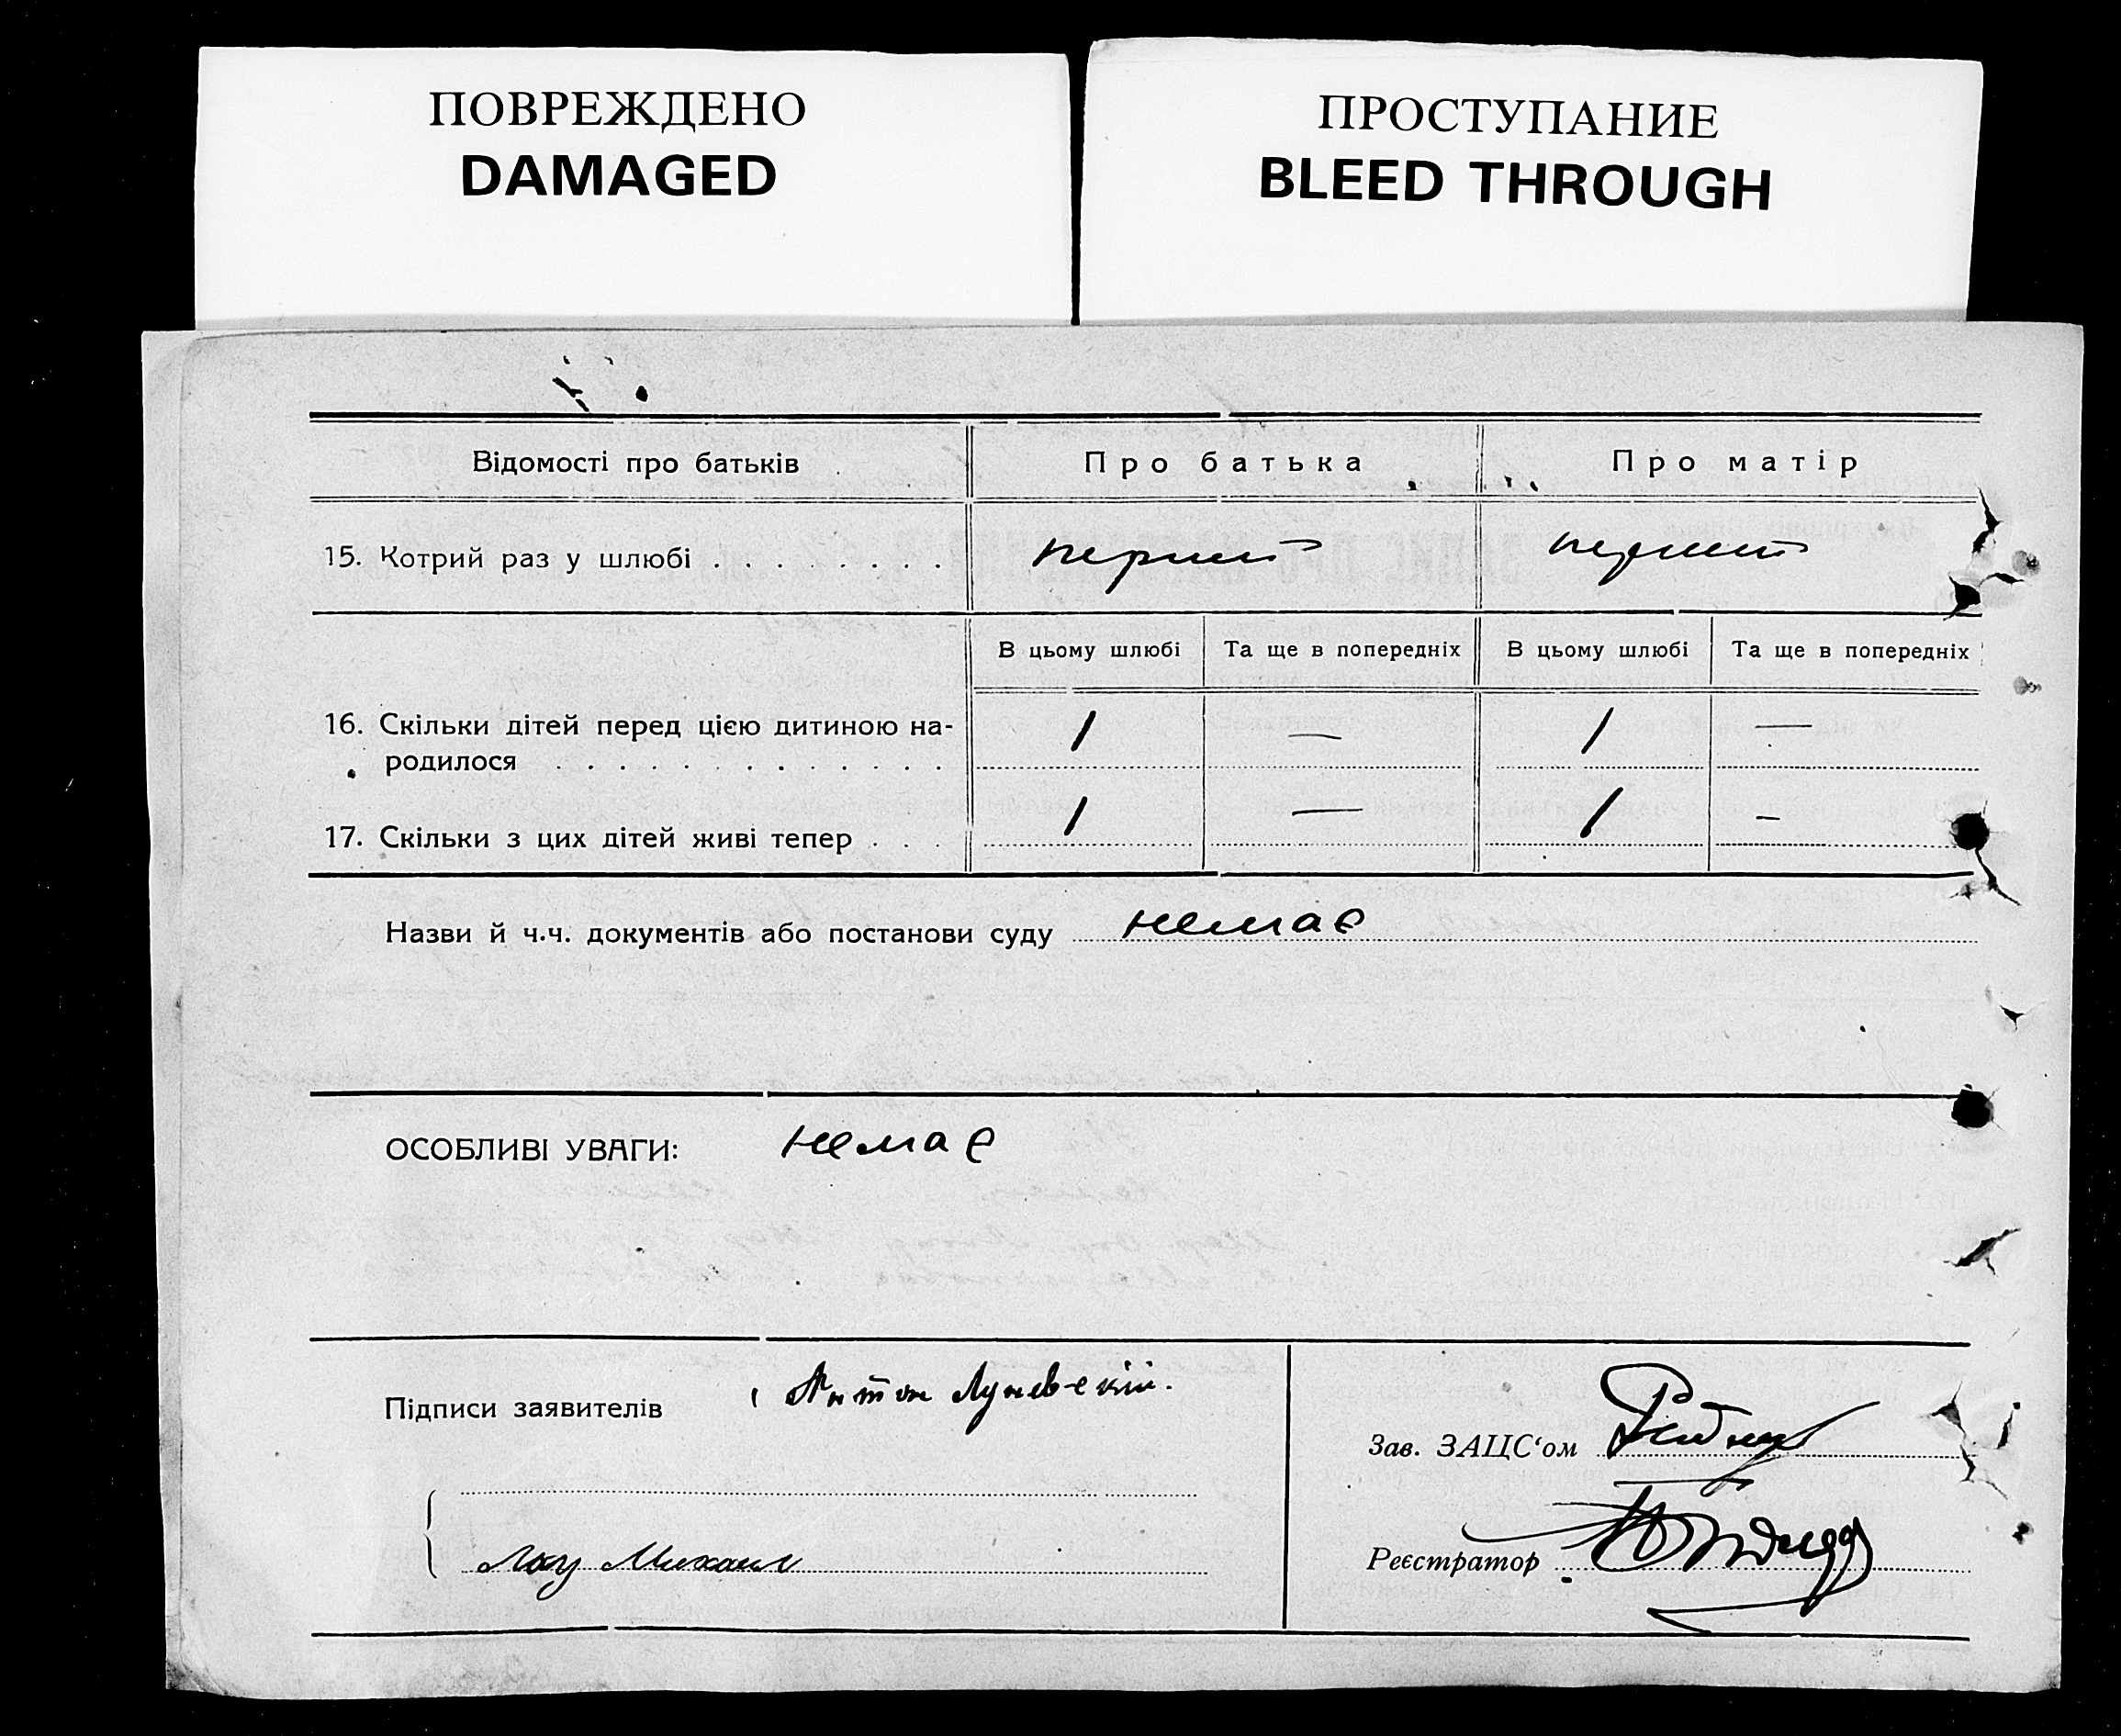 ПОВРЕЖДЕНО
DAMAGED
ПРОСТУПАНИЕ
BLEED THROUGH
Відомості про батьків Про батька Про матір
15. Котрий раз у шлюбі . . . . . . . . перший перший
В цьому шлюбі Та ще в попередніх В цьому шлюбі Та ще в попередніх
16. Скільки дітей перед цією дитиною на- 1 — 1 —
родилося . . . . . . . . . . . . .
17. Скільки з цих дітей живі тепер . . . 1 — 1 —
Назви й ч.ч. документів або постанови суду немає
ОСОБЛИВІ УВАГИ: немає
Підписи заявителів Антон
Зав. ЗАЦС‘ом
Михаил
Реєстратор